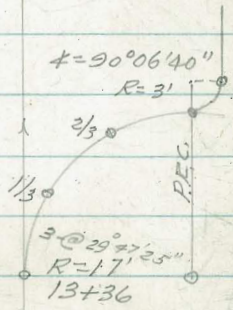 ∡=90°06'40"
R=3'
2/3
1/3
3-@ 29°47'25"
R=17'
13+36